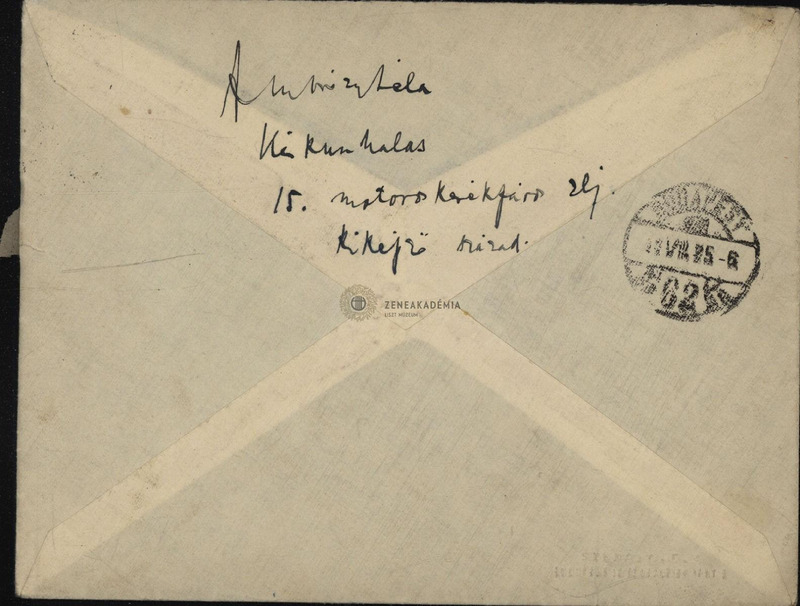 Ambrózy Béla
Kiskunhalas
15. motoros kerékpáros zlj.
Kiképző század.
BUDAPEST
VIII 25-6
62
ZENEAKADÉMIA
LISZT MÚZEUM